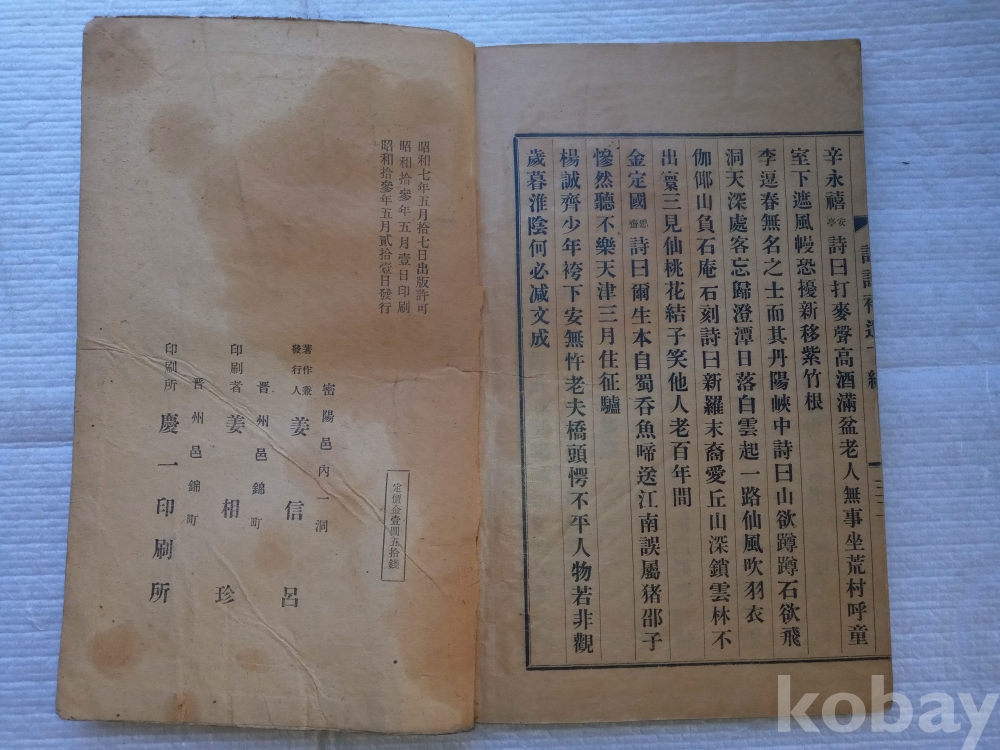 辛永禧 安亭 詩曰打麥聲高酒滿盆老人無事坐荒村呼童
室下遮風幔恐擾新移紫竹根
李逗春無名之士而其丹陽峽中詩曰山欲蹲蹲石欲飛
洞天深處客忘歸澄潭日落白雲起一路仙風吹羽衣
伽倻山負石庵石刻詩曰新羅末裔愛丘山深鎖雲林不
出寰三見仙桃花結子笑他人老百年間
金定國 思齋 詩曰爾生本自蜀呑魚啼送江南誤屬猪邵子
慘然聽不樂天津三月住征驢
楊誠齊少年袴下安無忤老夫橋頭愕不平人物若非觀
歲暮淮陰何必減文成
昭和七年五月拾七日出版許可
昭和拾參年五月壹日印刷
昭和拾參年五月貳拾壹日發行
定價金壹圓五拾錢
密陽邑內一洞
著作兼發行人 姜信呂
晋州邑錦町
印刷者 姜相珍
晋州邑錦町
印刷所 慶一印刷所
kobay